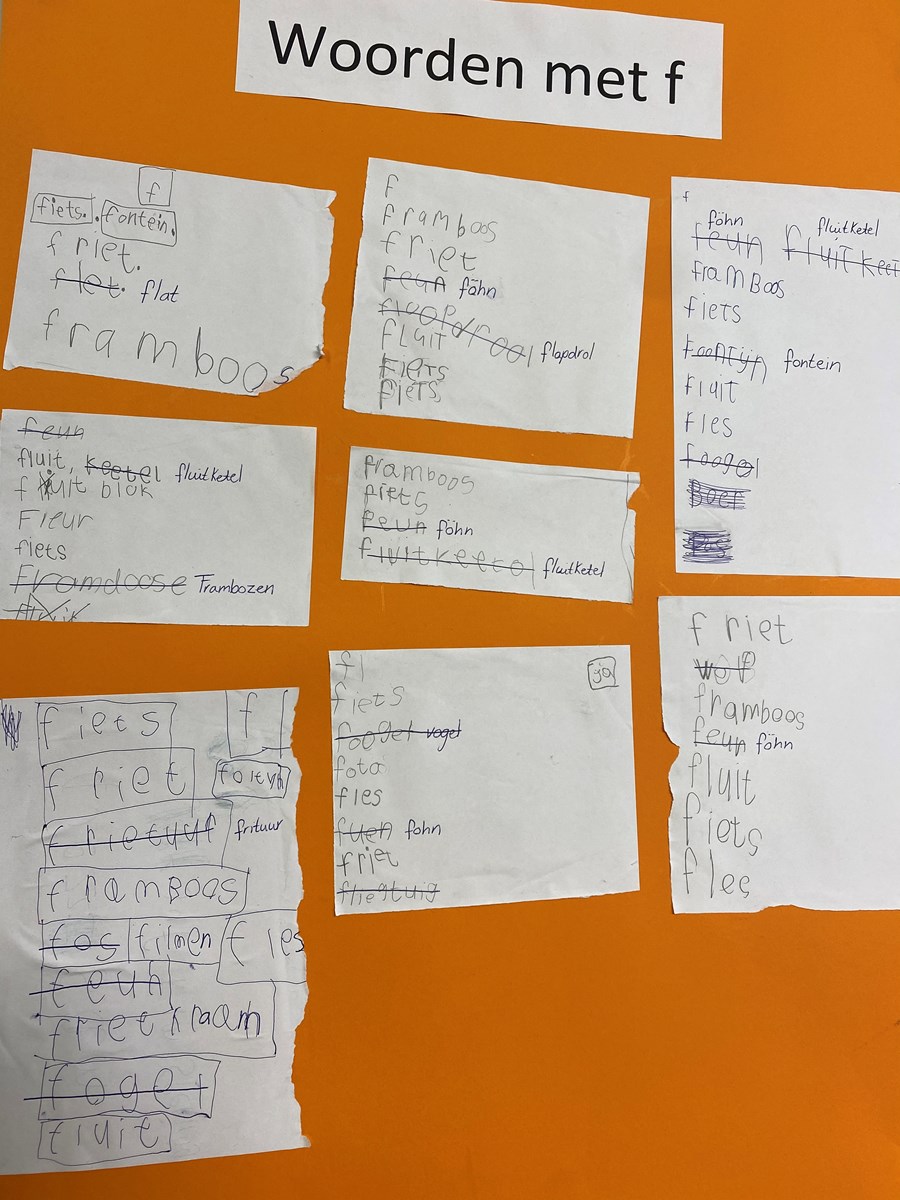 Woorden met f
f
fiets. fontein.
friet.
flet. flat
framboos
F
framboos
friet
feun föhn
floopdrool flapdrol
FLUIT
FIETS
FIETS
f
föhn fluitketel
feun
FramBoos
fIETS
Foontijn fontein
FLUIT
FLES
foogel
Boer
feun
fluit, keetel fluitketel
fluit blok
Fleur
fiets
Framdoose Frambozen
framboos
fiets
feun föhn
fluitkeetol fluitketel
fiets f
friet
frietuur frituur
framBoos
fos filmen fles
feun
friet kraam
fogel
fluit
fl ja
fiets
foogel vogel
foto
fles
fuen fohn
friet
fliegtuig
friet
wolf
framboos
feun föhn
fluit
fiets
fles